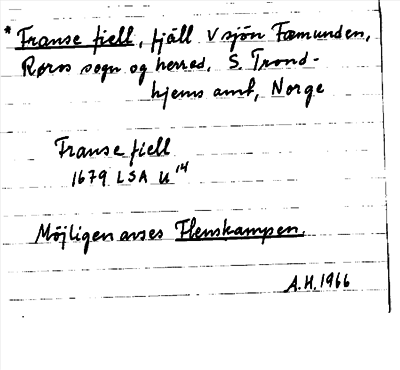 * Franse fiell, fjäll V sjön Fæmunden,
Røros sogn og herred, S. Trond-
hjems amt, Norge
Franse fiell
1679 LSA U 14
Möjligen avses Flenskampen.
A.H. 1966